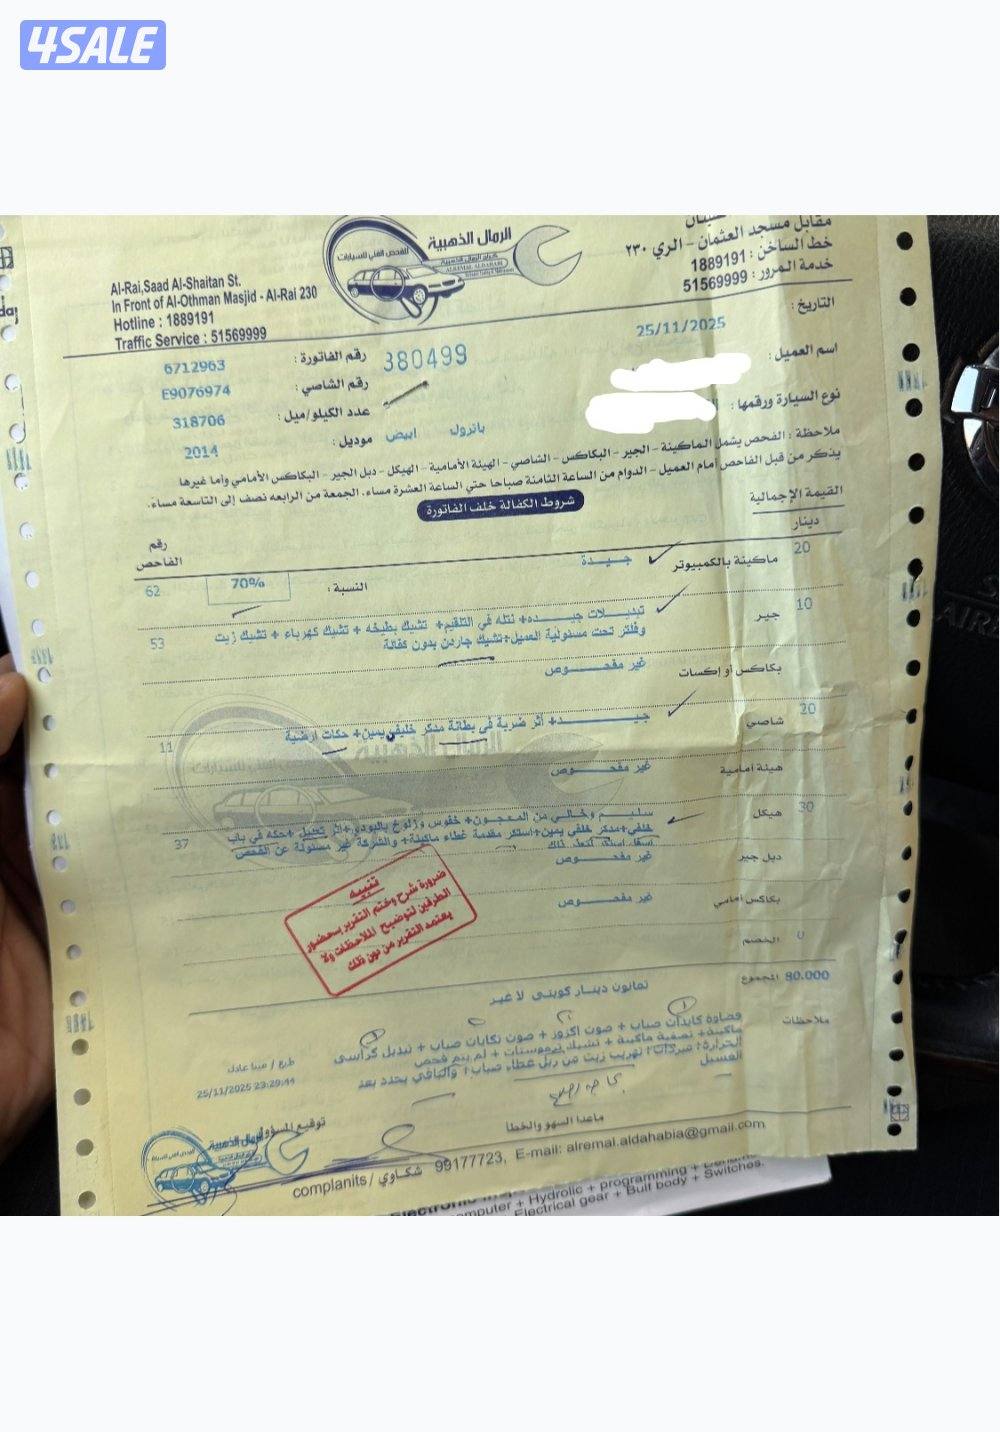 4SALE
الرمال الذهبية
الفحص الفني للسيارات
كراج الرمال الذهبية
ALREMAL ALDAHABI
مقابل مسجد العثمان - الري ٢٣٠
خط الساخن : 1889191
خدمة المرور : 51569999
Al-Rai,Saad Al-Shaitan St.
In Front of Al-Othman Masjid - Al-Rai 230
Hotline : 1889191
Traffic Service : 51569999
التاريخ : 25/11/2025
رقم الفاتورة : 6712963
380499
اسم العميل :
رقم الشاصي : E9076974
نوع السيارة ورقمها :
عدد الكيلو/ميل : 318706
باترول ابيض
موديل : 2014
ملاحظة : الفحص يشمل الماكينة - الجير - البكاكس - الشاصي - الهيئة الأمامية - الهيكل - دبل الجير - البكاكس الأمامي وأما غيرها
يذكر من قبل الفاحص أمام العميل - الدوام من الساعة الثامنة صباحا حتي الساعة العشرة مساء، الجمعة من الرابعه نصف إلى التاسعة مساء.
شروط الكفالة خلف الفاتورة
القيمة الإجمالية
دينار
رقم
الفاحص
20 ماكينة بالكمبيوتر جيدة
النسبة : 70% 62
10 جير تبديلات جيده+ نتله في التلقيم+ تشيك بطيخه + تشيك كهرباء + تشيك زيت
وفلتر تحت مسئولية العميل+تشيك جاردن بدون كفالة 53
بكاكس أو إكسات غير مفحوص
20 شاصي جيد+ أثر ضربة في بطانة مدكر خليفي يمين+ حكات ارضية 11
هيئة أمامية غير مفحوص
30 هيكل سليم وخالي من المعجون+ خفوس وزلوخ بالبودي+اثر تعديل +حكه في باب
خلفي+مدكر خلفي يمين+استكر مقدمة غطاء ماكينة+ والشركة غير مسئولة عن الفحص 37
دبل جير غير مفحوص
بكاكس أمامي غير مفحوص
0 الخصم
80.000 المجموع
ثمانون دينار كويتي لا غير
تنبيه
ضرورة شرح وختم التقرير بحضور
الطرفين لتوضيح الملاحظات ولا
يعتمد التقرير من دون ذلك
ملاحظات
قضاوة كايدات صباب + صوت اكزوز + صوت تكايات صباب + تبديل كراسي
ماكينة+ تصفية ماكينة + تشيك ثرموستات + لم يتم فحص
الحرارة/ مبردات/ تهريب زيت من ربل غطاء صباب/ والباقي يحدد بعد
الغسيل
طبع / مينا عادل
25/11/2025 23:29:44
ماعدا السهو والخطأ
توقيع المسؤول
complanits / شكاوي 99177723, E-mail: alremal.aldahabia@gmail.com
computer + Hydrolic + programming +
Electrical gear + Bulf body + Switches.